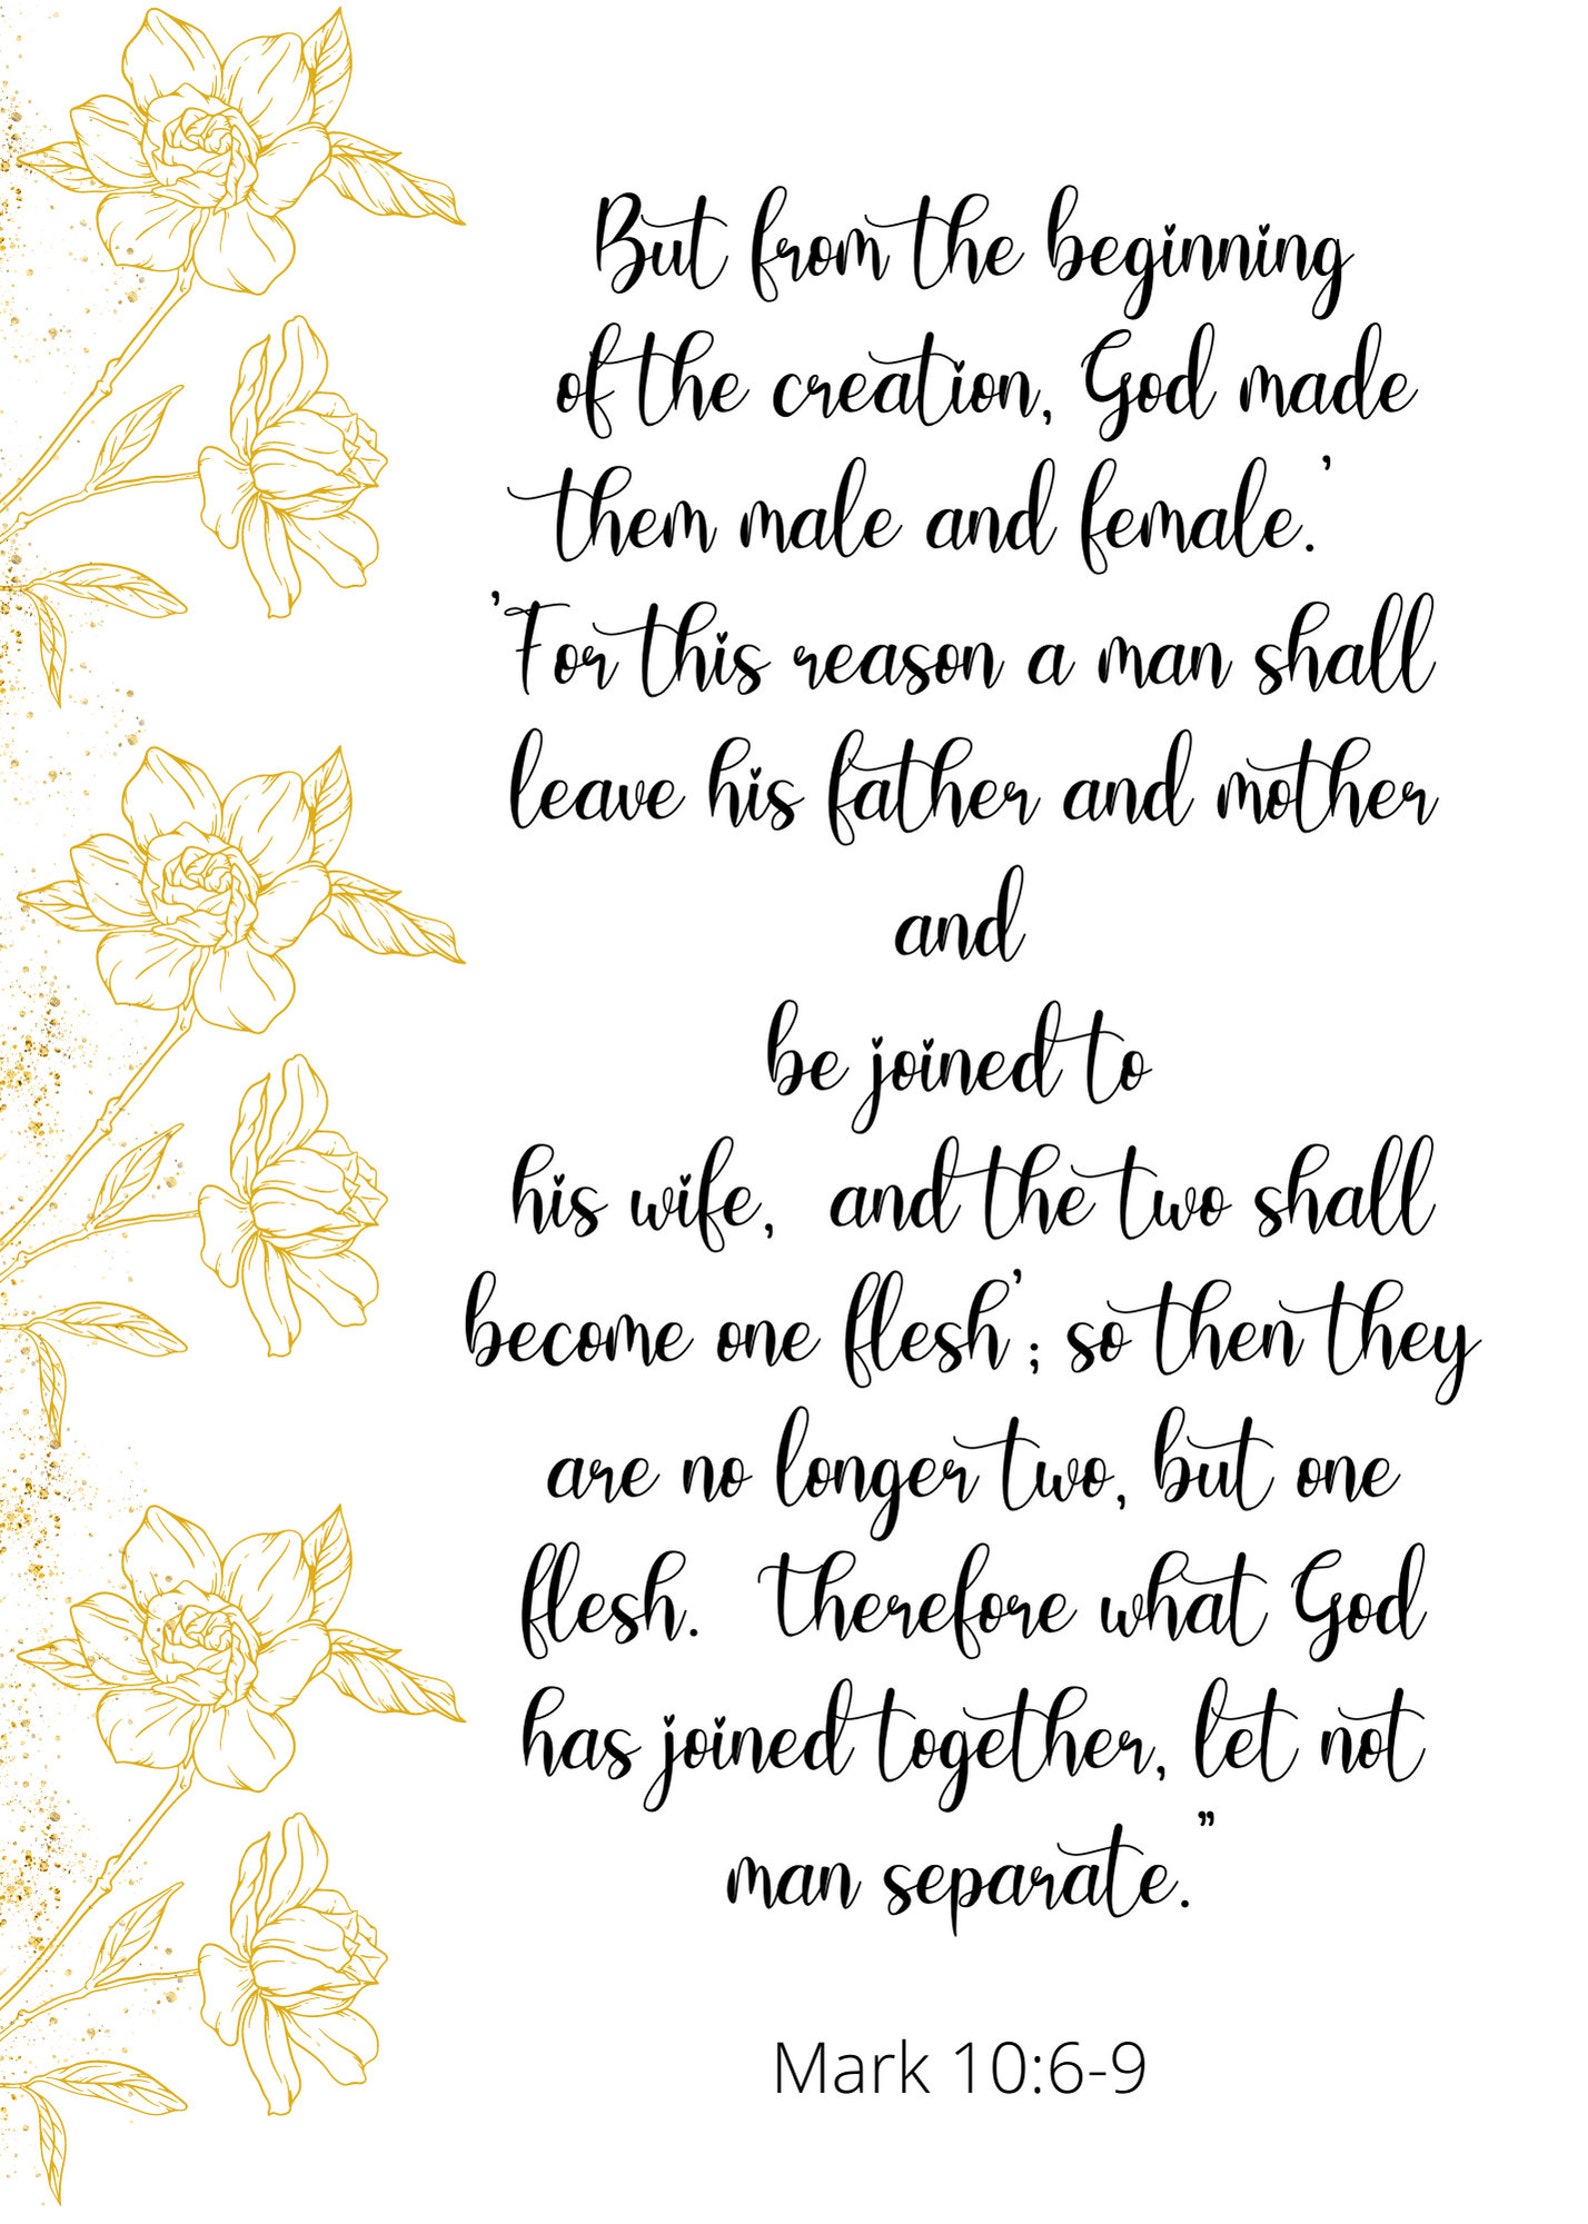 But from the beginning
of the creation, God made
them male and female.’
’For this reason a man shall
leave his father and mother
and
be joined to
his wife,  and the two shall
become one flesh’; so then they
are no longer two, but one
flesh.  therefore what God
has joined together, let not
man separate.”
Mark 10:6-9